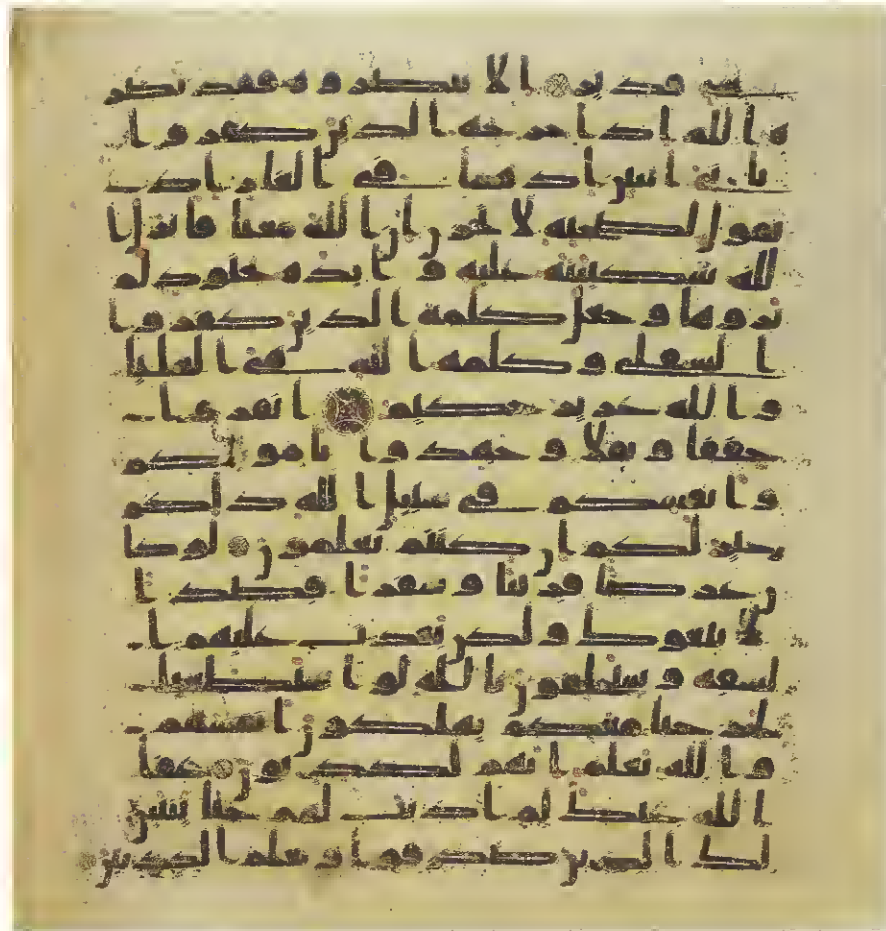 شيء قدير الا تنصروه فقد نصر
ه الله اذ اخرجه الذين كفروا
ثاني اثنين اذ هما في الغار اذ
يقول لصحبه لا تحزن ان الله معنا فانزل ا
لله سكينته عليه وايده بجنود لم
تروها وجعل كلمة الذين كفروا
السفلى وكلمة الله هي العليا
والله عزيز حكيم انفروا
خفافا وثقالا وجهدوا باموالكم
وانفسكم في سبيل الله ذلكم
خير لكم ان كنتم تعلمون لو كا
ن عرضا قريبا وسفرا قصدا
لاتبعوك ولكن بعدت عليهم ا
لشقة وسيحلفون بالله لو استطعنا
لخرجنا معكم يهلكون انفسهم
والله يعلم انهم لكذبون عفا
الله عنك لم اذنت لهم حتى يتبين
لك الذين صدقوا وتعلم الكذبين